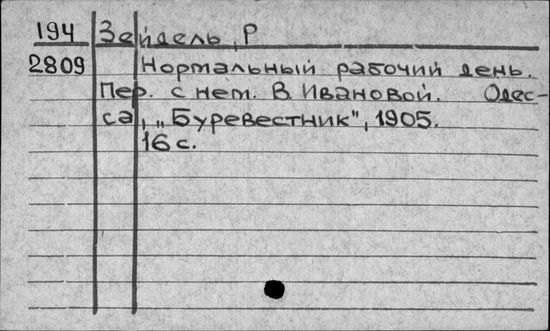 194 Зейдель, Р
2809 Нормальный рабочий день.
Пер. с нем. В. Ивановой. Одес-
са, „Буревестник", 1905.
16 с.